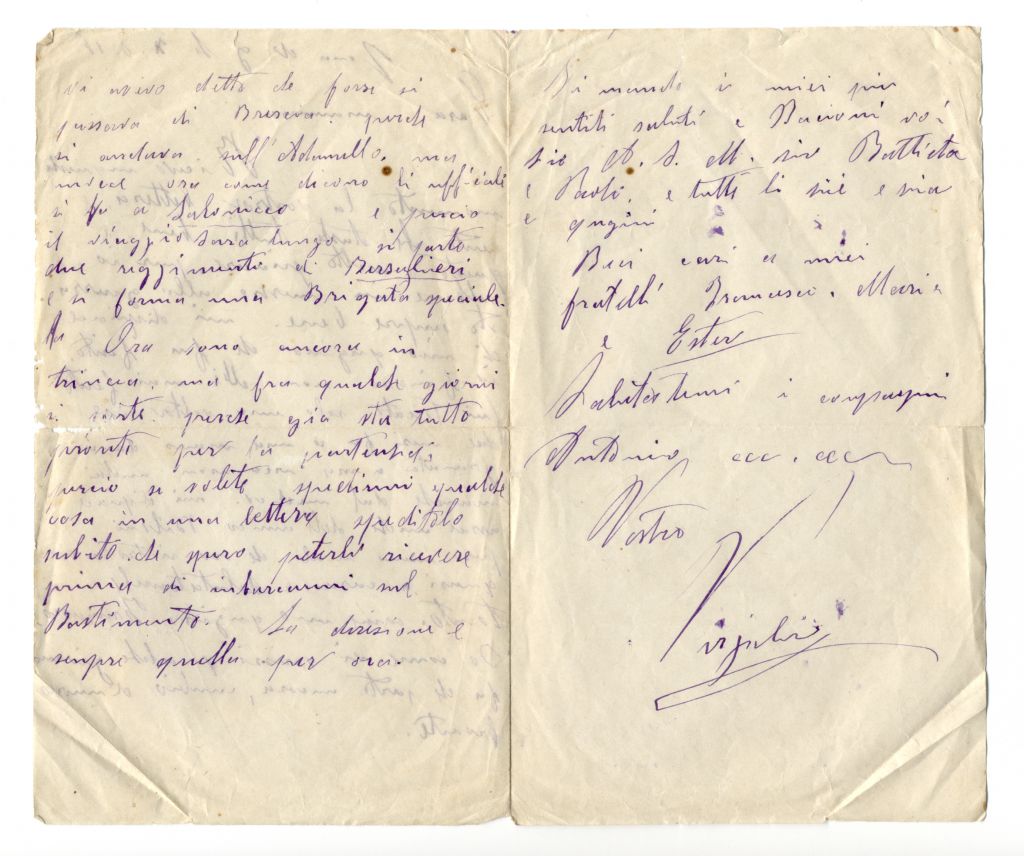 vi avevo detto che forse si
passava di Brescia perche
si andava sull'Adamello. ma
invece ora come dicono li ufficiali
si va a Salonicco e perciò
il viaggio sarà lungo si parte
due reggimenti di Bersaglieri
e si forma una Brigata speciale.
Ora sono ancora in
trincea. ma fra qualche giorni
si parte perche già sta tutto
pronto per la partensa;
perciò se volete spedirmi qualche
cosa in una lettera speditelo
subito. che spero poterlo ricevere
prima di imbarcarmi sul
Bastimento. La diresione è
sempre quella per ora.
Vi mando i miei più
sentiti saluti e Bacioni
zio A. S. M. zio Battista
e Paoli, e tutti li zii e zia
e qugini
Baci cari a miei
fratelli Francesco. Maria
e Ester
Salutatemi i conpagni
Antonio ecc. ecc
Vostro
Virgilio